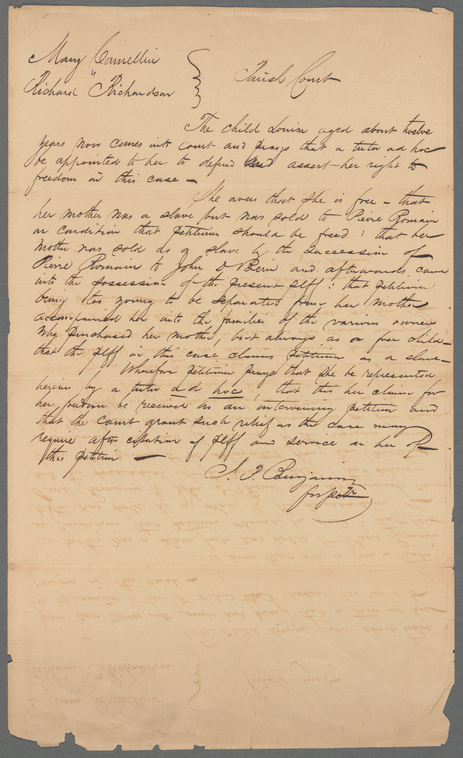 Mary Camellin
"
Richard Richardson
Parish Court
The child Louisa aged about twelve
years now comes into Court and prays that a tutor ad hoc
be appointed to her to defend and assert her right to
freedom in this case —
She avers that she is free — that
her mother was a slave but was sold to Pierre Romain
on condition that petitioner should be freed : that her
mother was sold as a slave by the succession of
Pierre Romain to John and afterwards came
into the possession of the present plff : that petitioner
being too young to be separated from her mother
accompanied her into the families of the various owners
who purchased her mother, but always as a free child —
that the plff in this case claims petitioner as a slave —
Wherefore petitioner prays that she be represented
herein by a tutor ad hoc, that this her claim for
her freedom be received as an intervening petition and
that the Court grant such relief as the case may
require after citation of plff and service on her of
this petition —
Benjamin
for petr